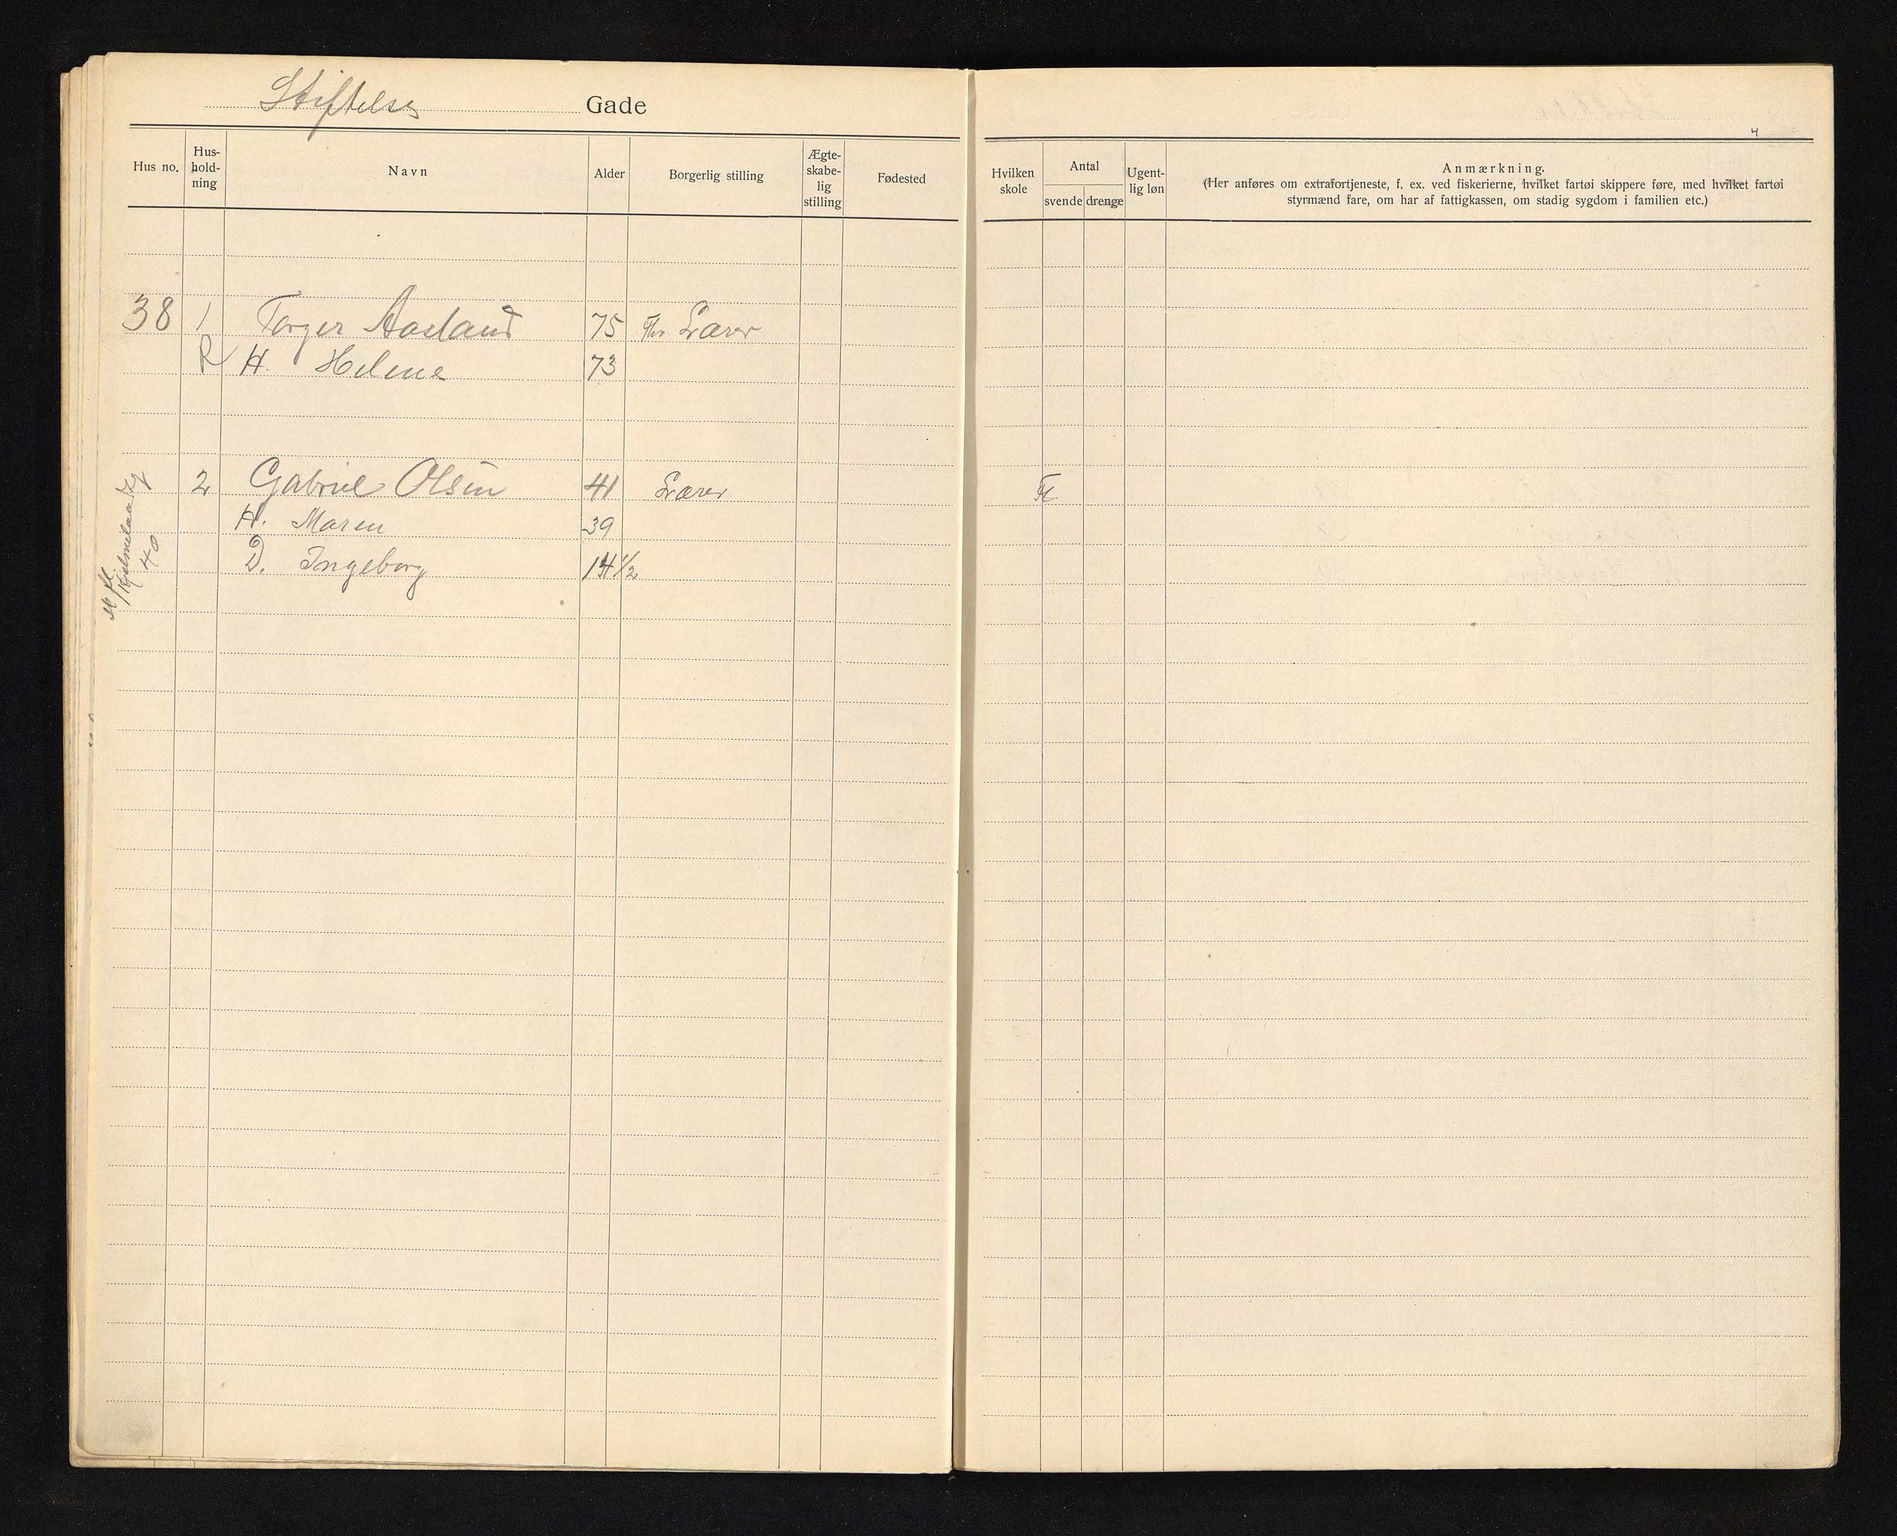 Stiftelses Gade
Hus no. Hus-holdning Navn Alder Borgerlig stilling Ægte-skabe-lig stilling Fødested
Hvilken skole Antal svende drenge Ugent-lig løn Anmærkning.
(Her anføres om extrafortjeneste, f. ex. ved fiskerierne, hvilket fartøi skippere føre, med hvilket fartøi
styrmænd fare, om har af fattigkassen, om stadig sygdom i familien etc.)
4
38 1 Torger Aasland 75 Fhv Lærer
R H. Helene 73
2 Gabriel Olsen 41 Lærer Fl
H. Maren 39
D. Ingeborg 14 1/2
40